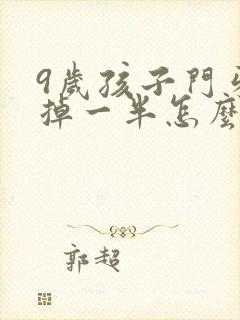 9歲孩子門
掉一半怎麼
郭超